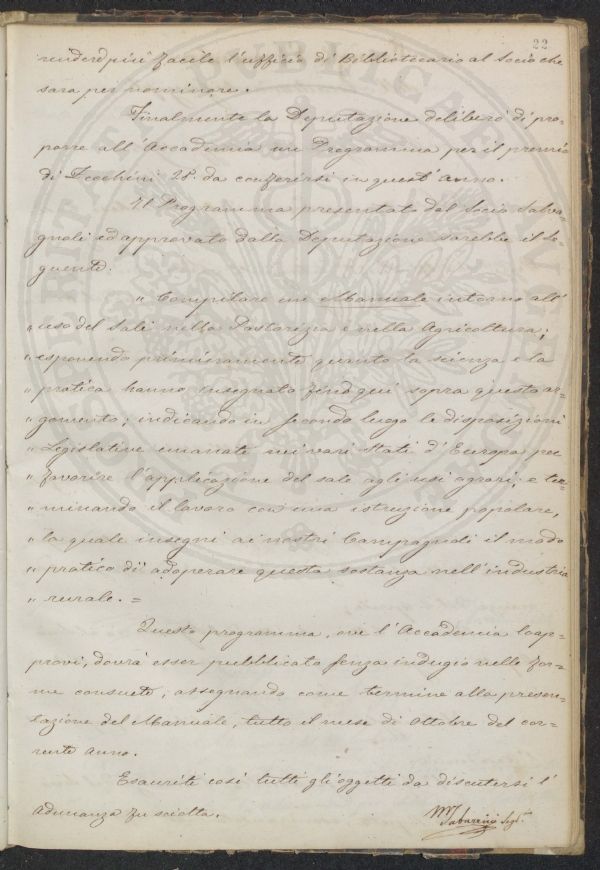 22
renderd più facile l'ufficio di Bibliotecario al Socio che
sara per nominare.
Finalmente la Deputazione deliberò di pro-
porre all'Accademia un Programma per il premio
di Zecchini 25. da conferirsi in quest'anno.
Il Programma presentato dal Socio Salva-
gnoli ed approvato dalla Deputazione sarebbe il Se
guente.
" Compilare un Manuale intorno all'
" uso del Sale nella Pastorizia e nella Agricoltura;
" esponendo primieramente quanto la scienza e la
" pratica hanno insegnato finò qui sopra questo ar-
" gomento; indicando in secondo luogo le disposizioni
" Legislative emanate nei vari Stati d'Europa per
" favorire l'applicazione del sale agli usi agrari, e ter-
" minando il lavoro con una istruzione popolare,
" la quale insegni ai nostri Campagnoli il modo
" pratico di adoperare questa sostanza nell'industria
" rurale. =
Questo programma, ove l'Accademia lo ap-
provi, dovrà esser pubblicato senza indugio nelle for-
me consuete, assegnando come termine alla presen-
tazione del Manuale, tutto il mese di Ottobre del cor-
rente anno.
Esaurite così tutti gli oggetti da discutersi l'
adunanza fu sciolta.
M Tabarrini Seg.